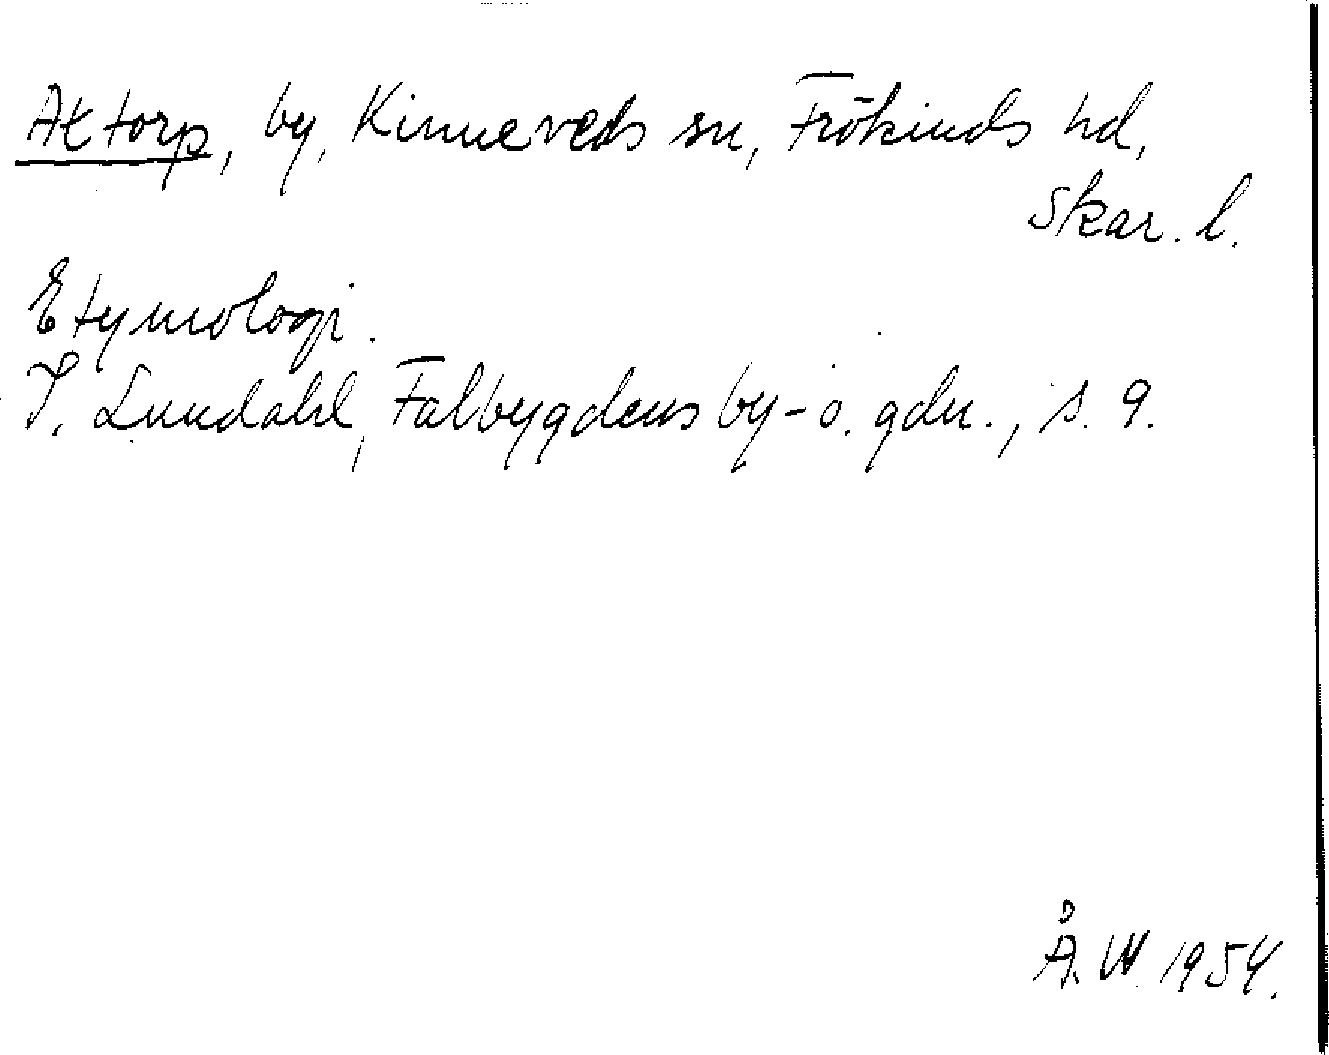 Attorp, by, Kinneveds sn, Frökinds hd,
Skar. l.
Etymologi.
I. Lundahl, Falbygdens by- o. gdn., s. 9.
Å. W. 1954.